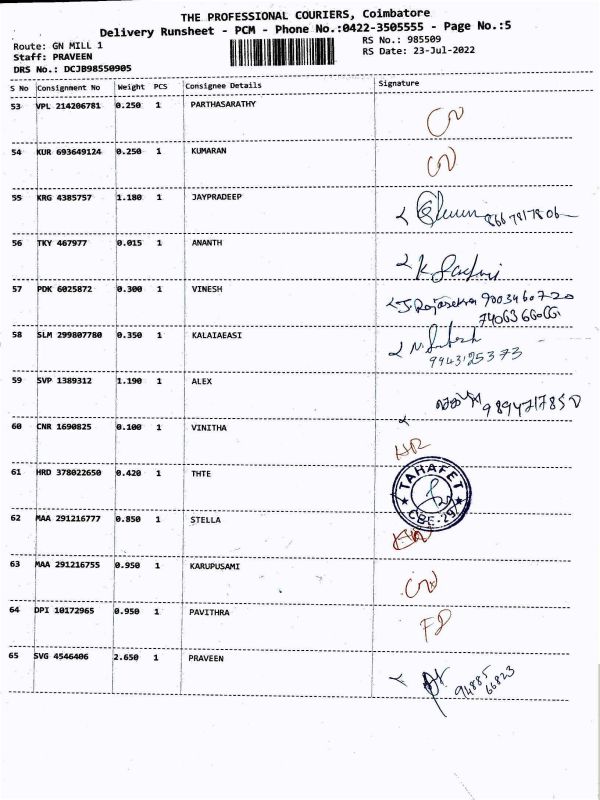 THE PROFESSIONAL COURIERS, Coimbatore
Delivery Runsheet - PCM - Phone No.:0422-3505555 - Page No.:5
Route: GN MILL 1
RS No.: 985509
Staff: PRAVEEN
RS Date: 23-Jul-2022
DRS No.: DCJB98550905
S No Consignment No Weight PCS Consignee Details Signature
53 VPL 214206781 0.250 1 PARTHASARATHY
54 KUR 693649124 0.250 1 KUMARAN
55 KRG 4385757 1.180 1 JAYPRADEEP
56 TKY 467977 0.015 1 ANANTH
57 PDK 6025872 0.300 1 VINESH
58 SLM 299807780 0.350 1 KALAIAEASI
9943125373
59 SVP 1389312 1.190 1 ALEX
60 CNR 1690825 0.100 1 VINITHA
61 HRD 378022650 0.420 1 THTE
TAHAFET
CBE-29
62 MAA 291216777 0.850 1 STELLA
63 MAA 291216755 0.950 1 KARUPUSAMI
64 DPI 10172965 0.950 1 PAVITHRA
65 SVG 4546406 2.650 1 PRAVEEN
94885
66823